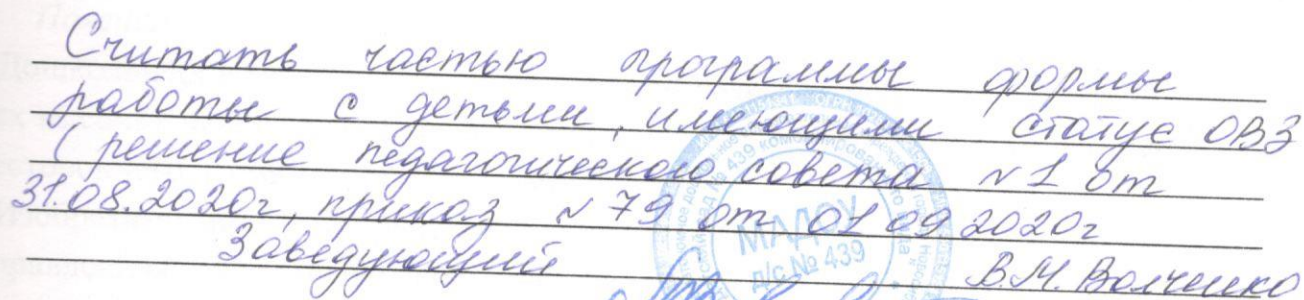 Считать частью программы формы
работы с детьми, имеющими статус ОВЗ
(решение педагогического совета №1 от
31.08.2020г, приказ №79 от 01 09 2020г
Заведующий В.М. Волченко
МАДОУ
д/с № 439